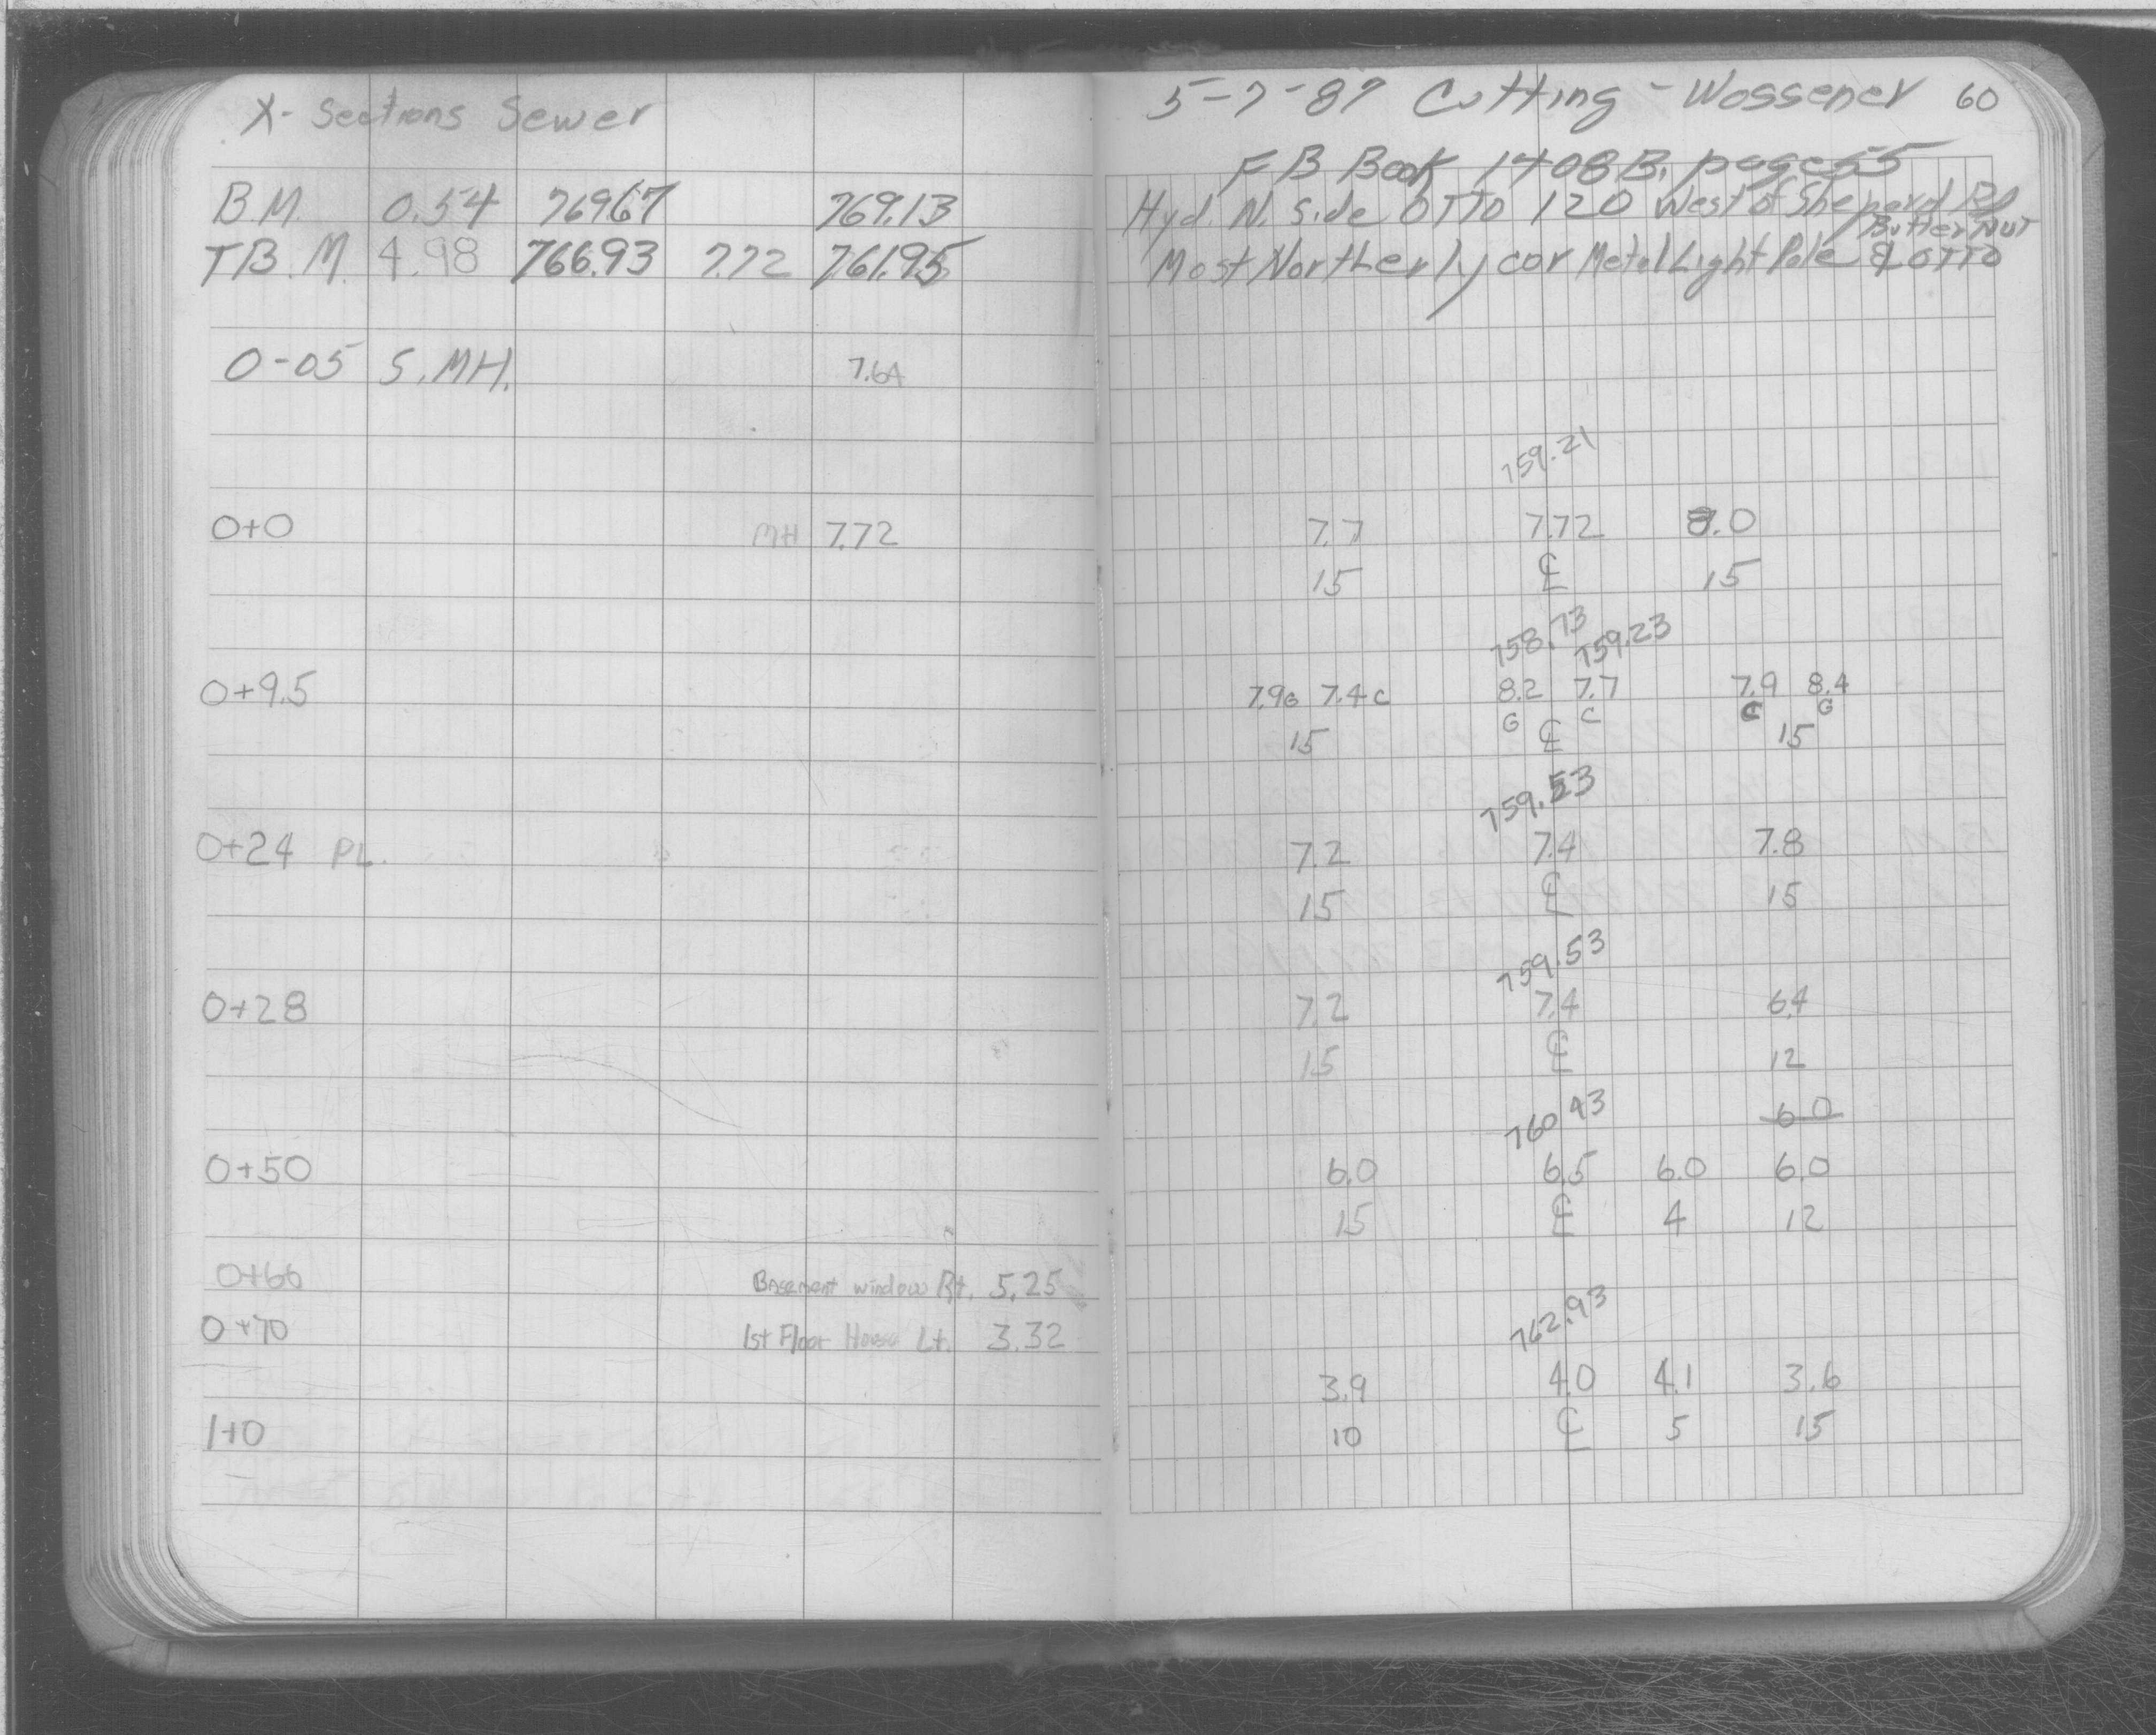 X- Sections Sewer
B.M. 0.54 769.67 769.13
T.B.M. 4.98 766.93 7.72 761.95
0-05 S.MH. 7.64
0+0 MH 7.72
0+9.5
0+24 PL.
0+28
0+50
0+66 Basement window Rt. 5.25
0+70 1st Floor House Lt. 3.32
1+0
5-7-87 Cutting - Wossener 60
FB Book 1408B, page 55
Hyd. N. Side OTTO 120 West of Sheperd Rd
Butter Nut
Most Northerly cor Metal Light Pole & OTTO
759.21
7.7 7.72 8.0
15 ℄ 15
758.73 759.23
7.9G 7.4C 8.2 7.7 7.9 8.4
G C C G
15 ℄ 15
759.53
7.2 7.4 7.8
15 ℄ 15
759.53
7.2 7.4 6.4
15 ℄ 12
760.43 6.0
6.0 6.5 6.0 6.0
15 ℄ 4 12
762.93
3.9 4.0 4.1 3.6
10 ℄ 5 15